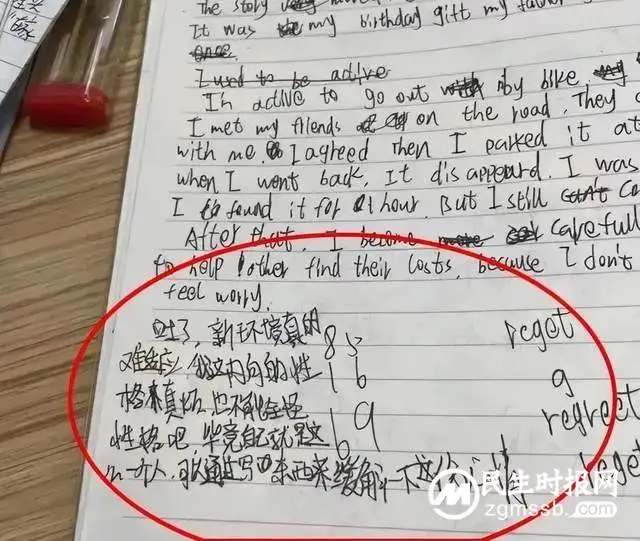 The story
It was my birthday gift my father
once.
I used to be active
I'm active to go out by bike.
I met my friends on the road. They
with me. I agreed Then I parked it at
when I went back. It disappeard. I was
I found it for 1 hour. But I still can't
After that, I become carefull
to help other find their losts, because I don't
feel worry.
吐了，新环境真的 85 reget
难适应，我这内向的性 16 g
格真坏，也不能全怪 9 regreet
性格吧，毕竟自己就是这 16
一个人，可以通过写东西来缓解一下这份 reget
民生时报网
zgmssb.com